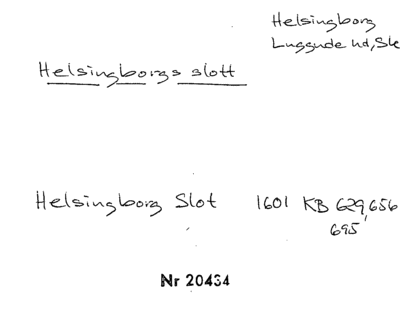 Helsingborg
Luggude hd, Sk
Helsingborgs slott
Helsingborg Slot 1601 KB 629, 656
695
Nr 20434